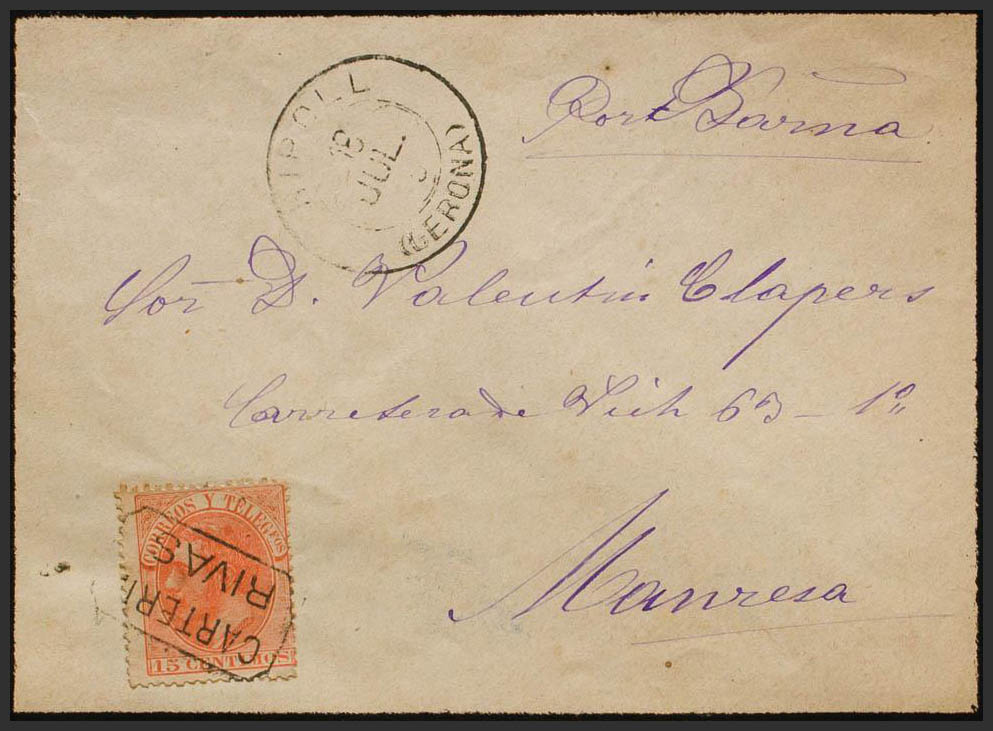 Port Barna
RIPOLL
18
JUL.
(GERONA)
Sor D. Valentin Clapers
Carretera de Vich 63 - 1º
Manresa
CORREOS Y TELEGFOS
CARTERI
RIVAS
15 CENTIMOS